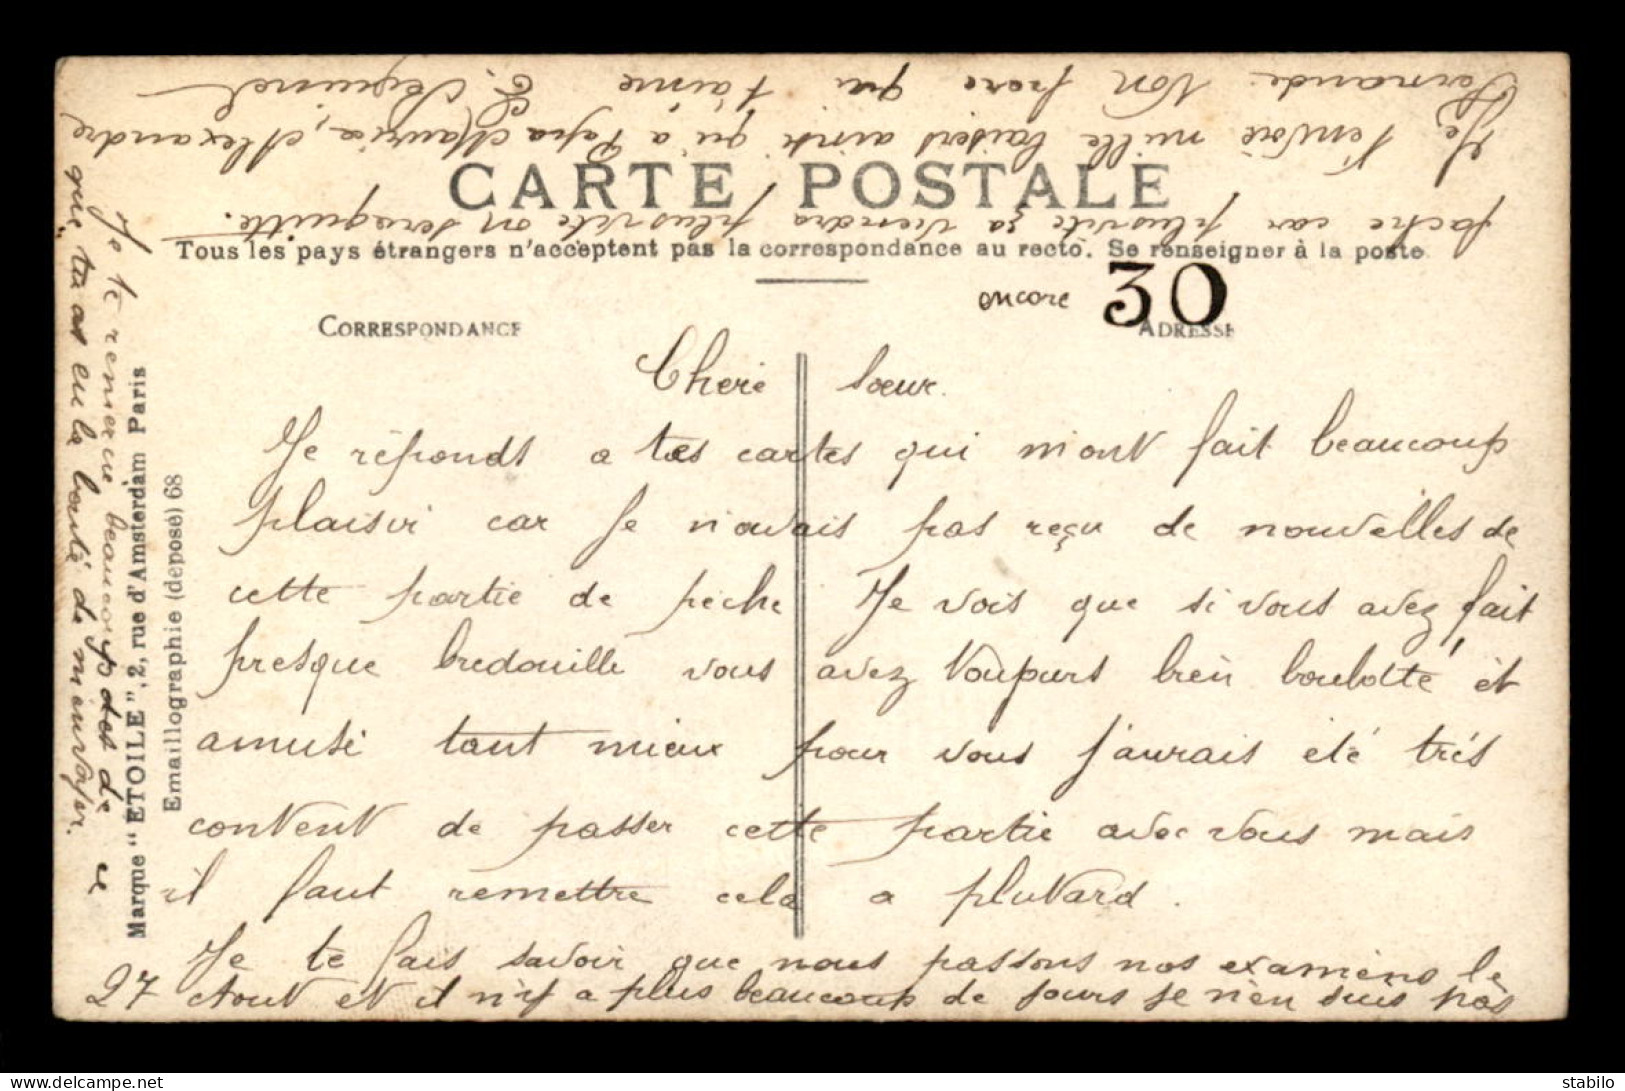 CARTE POSTALE
Tous les pays étrangers n'acceptent pas la correspondance au recto. Se renseigner à la poste
encore 30
CORRESPONDANCE
ADRESSE
Cherie sœur.
Je réponds a tes cartes qui m'ont fait beaucoup
plaisir car je n'avais pas reçu de nouvelles de
cette partie de peche Je vois que si vous avez fait
presque bredouille vous avez toujours bien boulotté et
amusé tant mieux pour vous j'aurais eté trés
content de passer cette partie avec vous mais
il faut remettre cela a plutard.
Je te fais savoir que nous passons nos examens le
27 Aout et il n'y a plus beaucoup de jours je n'en suis pas
faché car plus vite ça viendra plus vite on sera quitte.
Je t'envoie mille baisers ainsi qu'a Papa Maurice, Alexandre
Fernande. Ton frere qui t'aime
Je te remercie beaucoup de ce
que tu as eu la bonté de m'envoyer.
Marque "ETOILE", 2, rue d'Amsterdam Paris
Emaillographie (déposé) 68
stabilo